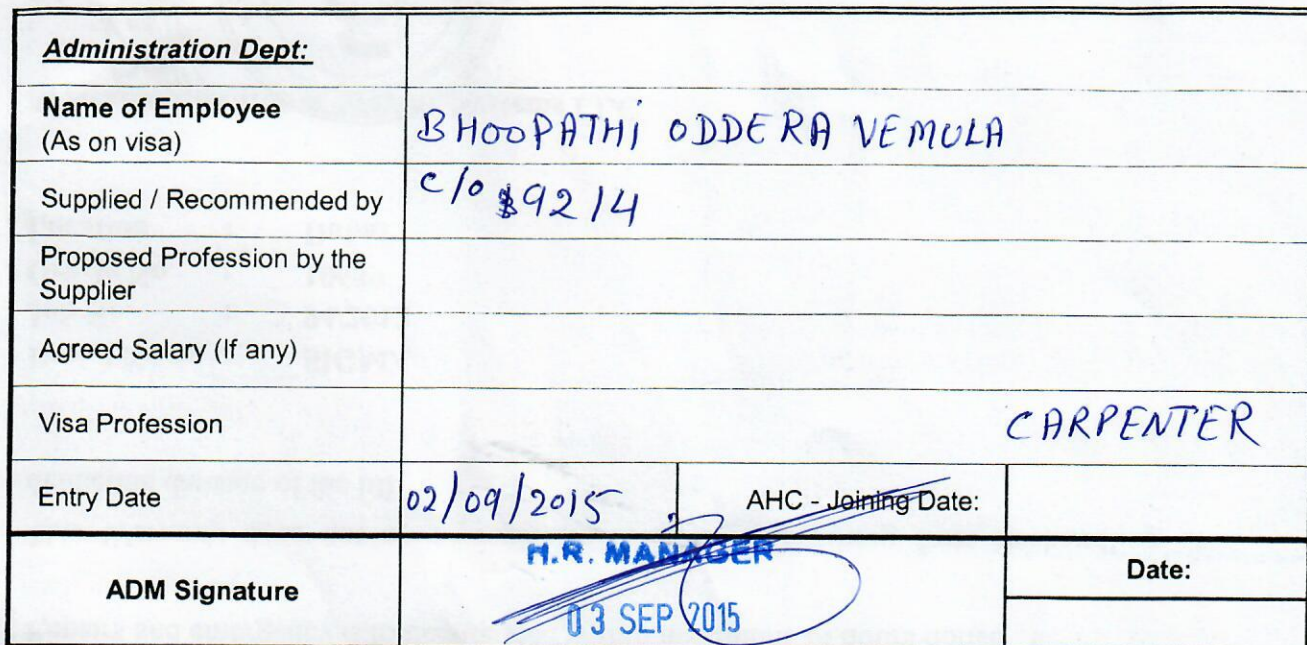 Administration Dept:
Name of Employee
(As on visa)
BHOOPATHi ODDERA VEMULA
Supplied / Recommended by
c/o 9214
Proposed Profession by the
Supplier
Agreed Salary (If any)
Visa Profession
CARPENTER
Entry Date
02/09/2015
AHC - Joining Date:
ADM Signature
H.R. MANAGER
03 SEP 2015
Date: